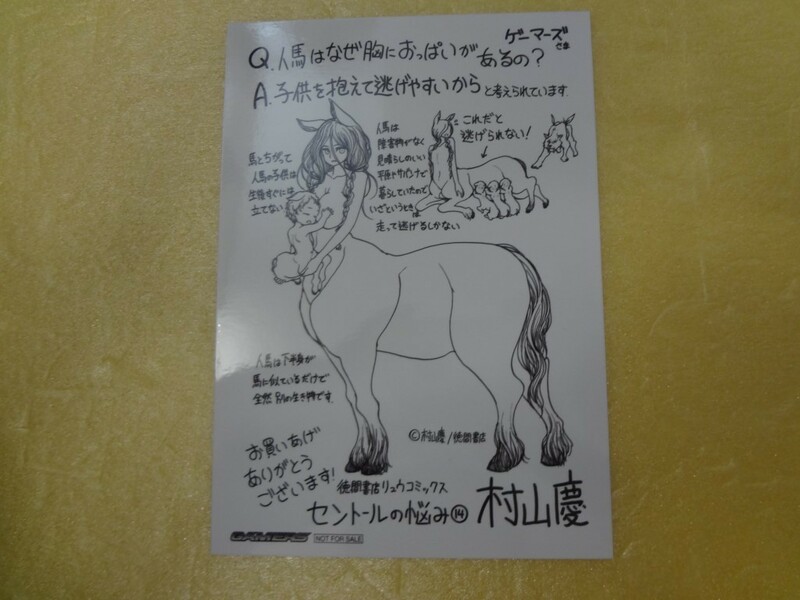 ゲーマーズさま
Q.人馬はなぜ胸におっぱいがあるの?
A.子供を抱えて逃げやすいからと考えられています.
馬とちがって
人馬の子供は
生後すぐには
立てない
人馬は
障害物がなく
見晴らしのいい
平原やサバンナで
暮らしていたので
いざというときは
走って逃げるしかない
これだと
逃げられない!
人馬は下半身が
馬に似ているだけで
全然別の生き物です.
©村山慶/徳間書店
お買いあげ
ありがとう
ございます!
徳間書店リュウコミックス
セントールの悩み⑭
村山慶
GAMERS NOT FOR SALE